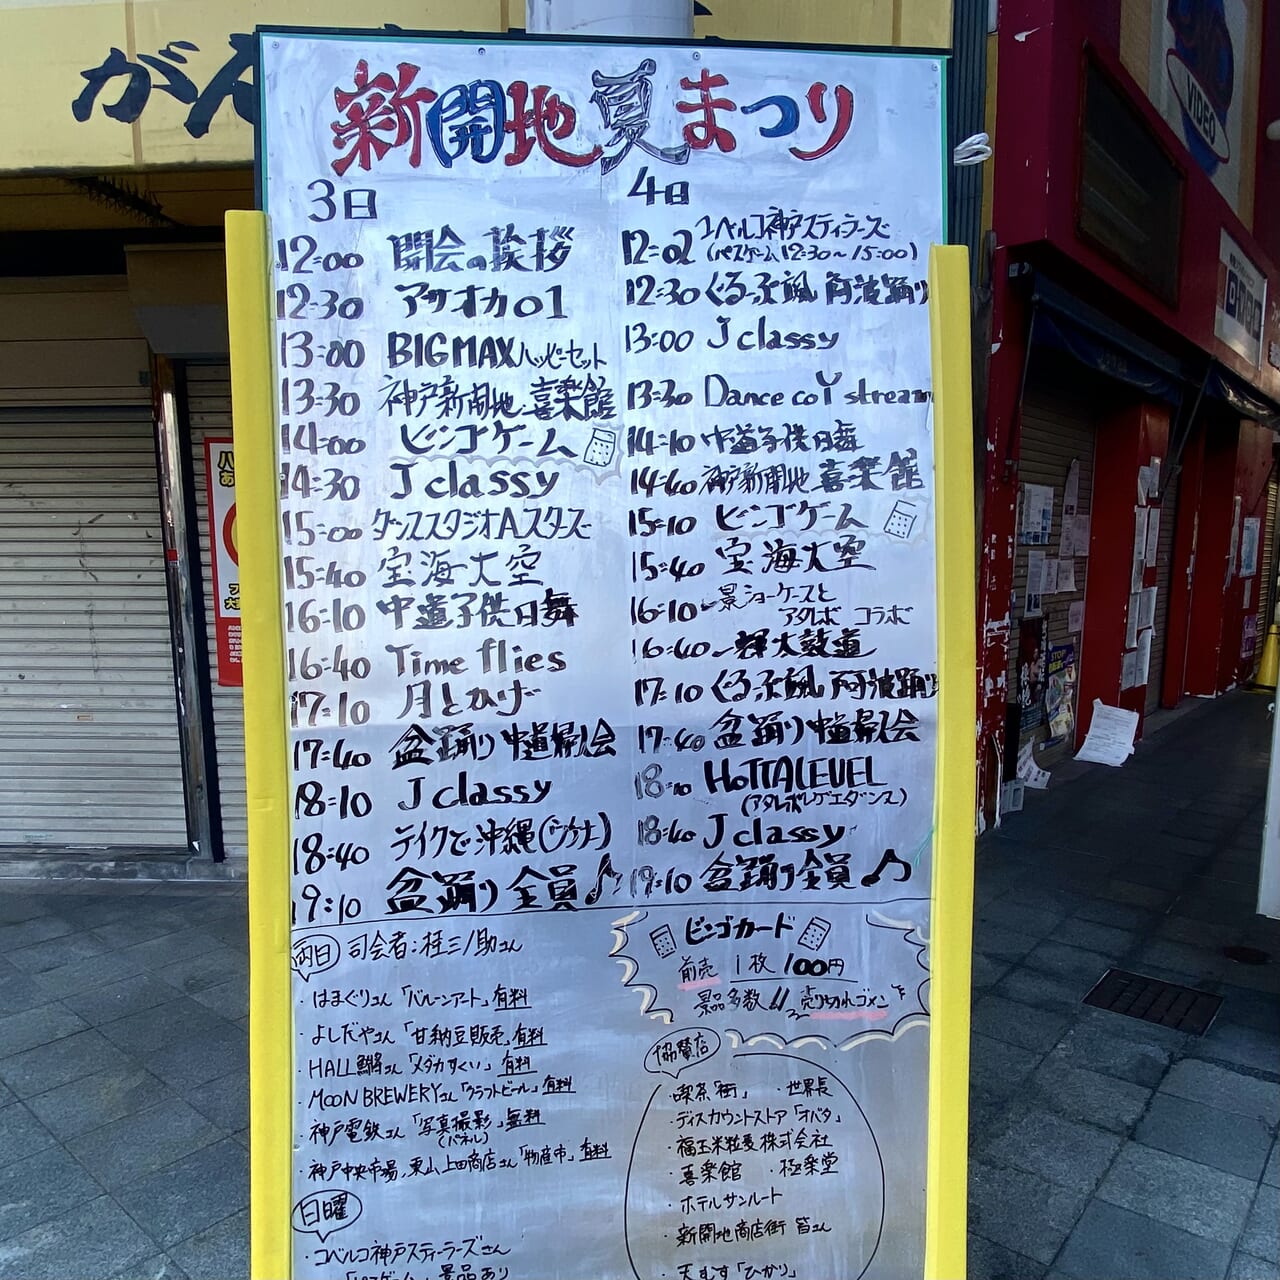 がん
新開地夏まつり
3日
12:00 開会の挨拶
12:30 アサオカ01
13:00 BIGMAXハッピーセット
13:30 神戸新開地・喜楽館
14:00 ビンゴゲーム
14:30 J classy
15:00 ダンススタジオAスターズ
15:40 宝海大空
16:10 中道子供日舞
16:40 Time flies
17:10 月とかげ
17:40 盆踊り 中道婦人会
18:10 J classy
18:40 テイクで沖縄
19:10 盆踊り 全員♪
4日
12:02 コベルコ神戸スティーラーズ
(パスゲーム12:30〜15:00)
12:30 ぐるっぷ颯 阿波踊り
13:00 J classy
13:30 Dance coY stream
14:10 中道子供日舞
14:40 神戸新開地・喜楽館
15:10 ビンゴゲーム
15:40 宝海大空
16:10 一景ショーケースと
アタレボ コラボ
16:40 一輝太鼓道
17:10 ぐるっぷ颯 阿波踊り
17:40 盆踊り 中道婦人会
18:10 HoTTALEVEL
(アタレボレゲエダンス)
18:40 J classy
19:10 盆踊り全員♪
両日 司会者:桂三ノ助さん
・はまぐりさん「バルーンアート」有料
・よしだやさん「甘納豆販売」有料
・HALL鱗さん「メダカすくい」有料
・MOON BREWERYさん「クラフトビール」有料
・神戸電鉄さん「写真撮影」無料
(パネル)
・神戸中央市場,東山上田商店さん「物産市」有料
日曜
・コベルコ神戸スティーラーズさん
「パスゲーム」景品あり
ビンゴカード
前売 1枚100円
景品多数!! 売り切れゴメン
協賛店
・喫茶「街」 ・世界長
・ディスカウントストア「オバタ」
・福玉米粒麦株式会社
・喜楽館 ・極楽堂
・ホテルサンルート
・新開地商店街 皆さん
・天むす「ひかり」
VIDEO